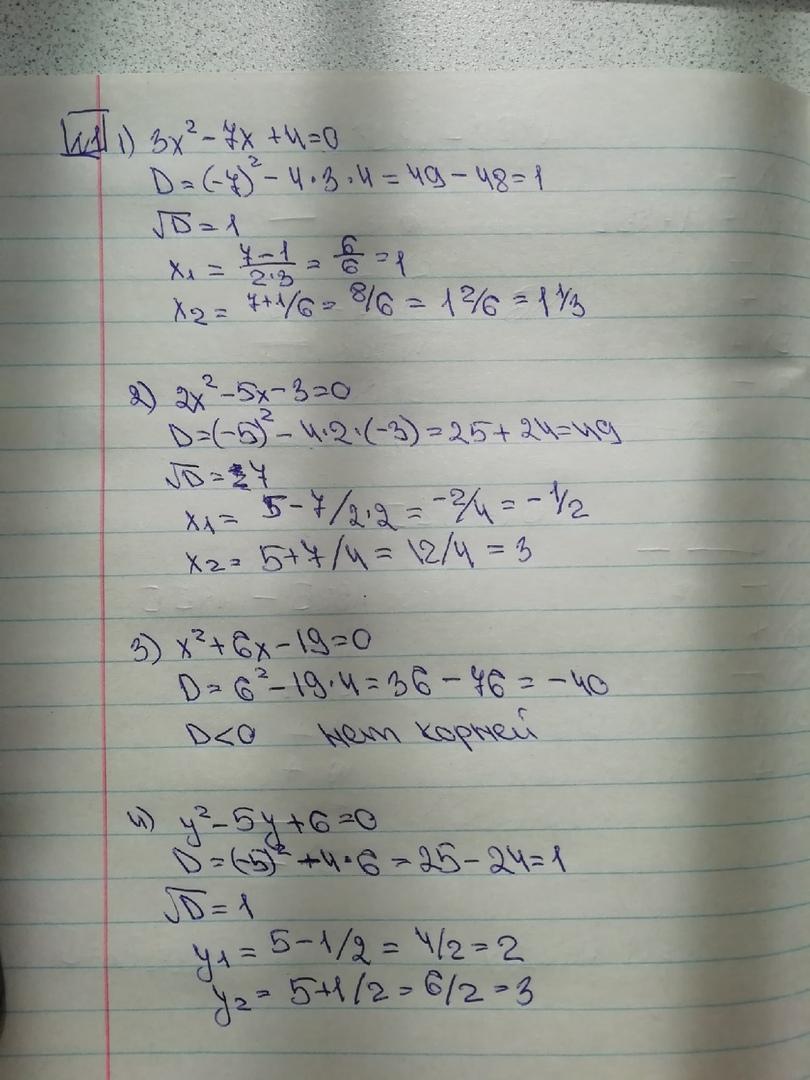 №1 1) 3x² - 7x + 4 = 0
D = (-7)² - 4·3·4 = 49 - 48 = 1
√D = 1
x₁ = (7-1)/(2·3) = 6/6 = 1
x₂ = 7+1/6 = 8/6 = 1 2/6 = 1 1/3
2) 2x² - 5x - 3 = 0
D = (-5)² - 4·2·(-3) = 25 + 24 = 49
√D = 7
x₁ = 5-7/2·2 = -2/4 = -1/2
x₂ = 5+7/4 = 12/4 = 3
3) x² + 6x - 19 = 0
D = 6² - 19·4 = 36 - 76 = -40
D<0 нет корней
4) y² - 5y + 6 = 0
D = (-5)² + 4·6 = 25 - 24 = 1
√D = 1
y₁ = 5-1/2 = 4/2 = 2
y₂ = 5+1/2 = 6/2 = 3